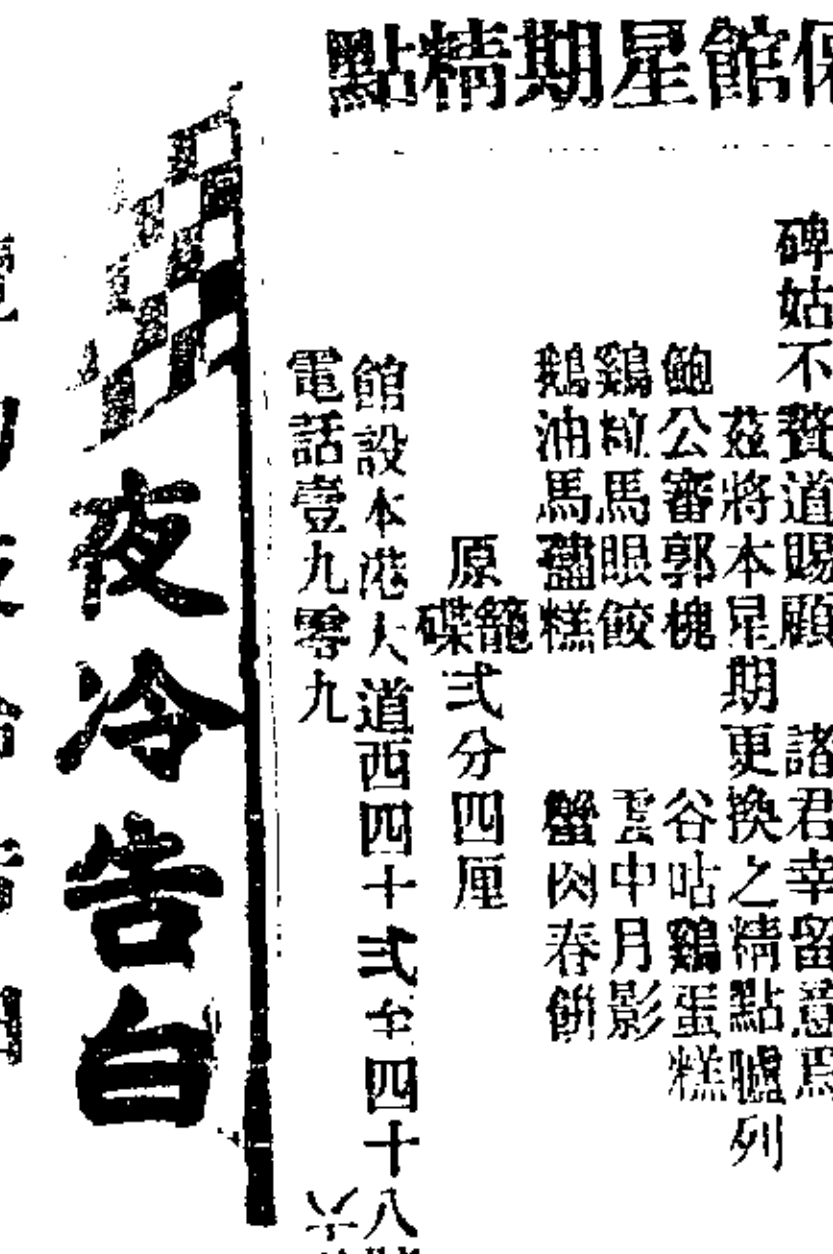 館星期精點
碑姑不贅道賜顧 諸君幸留意焉
茲將本星期更換之精點臚列
鮑公審郭槐 谷咕鷄蛋糕
鷄粒馬眼餃 雲中月影
鵝油馬𧃽糕 蟹肉春餅
原籠
碟弍分四厘
館設本港大道西四十弍至四十八
電話壹九零九
夜冷告白